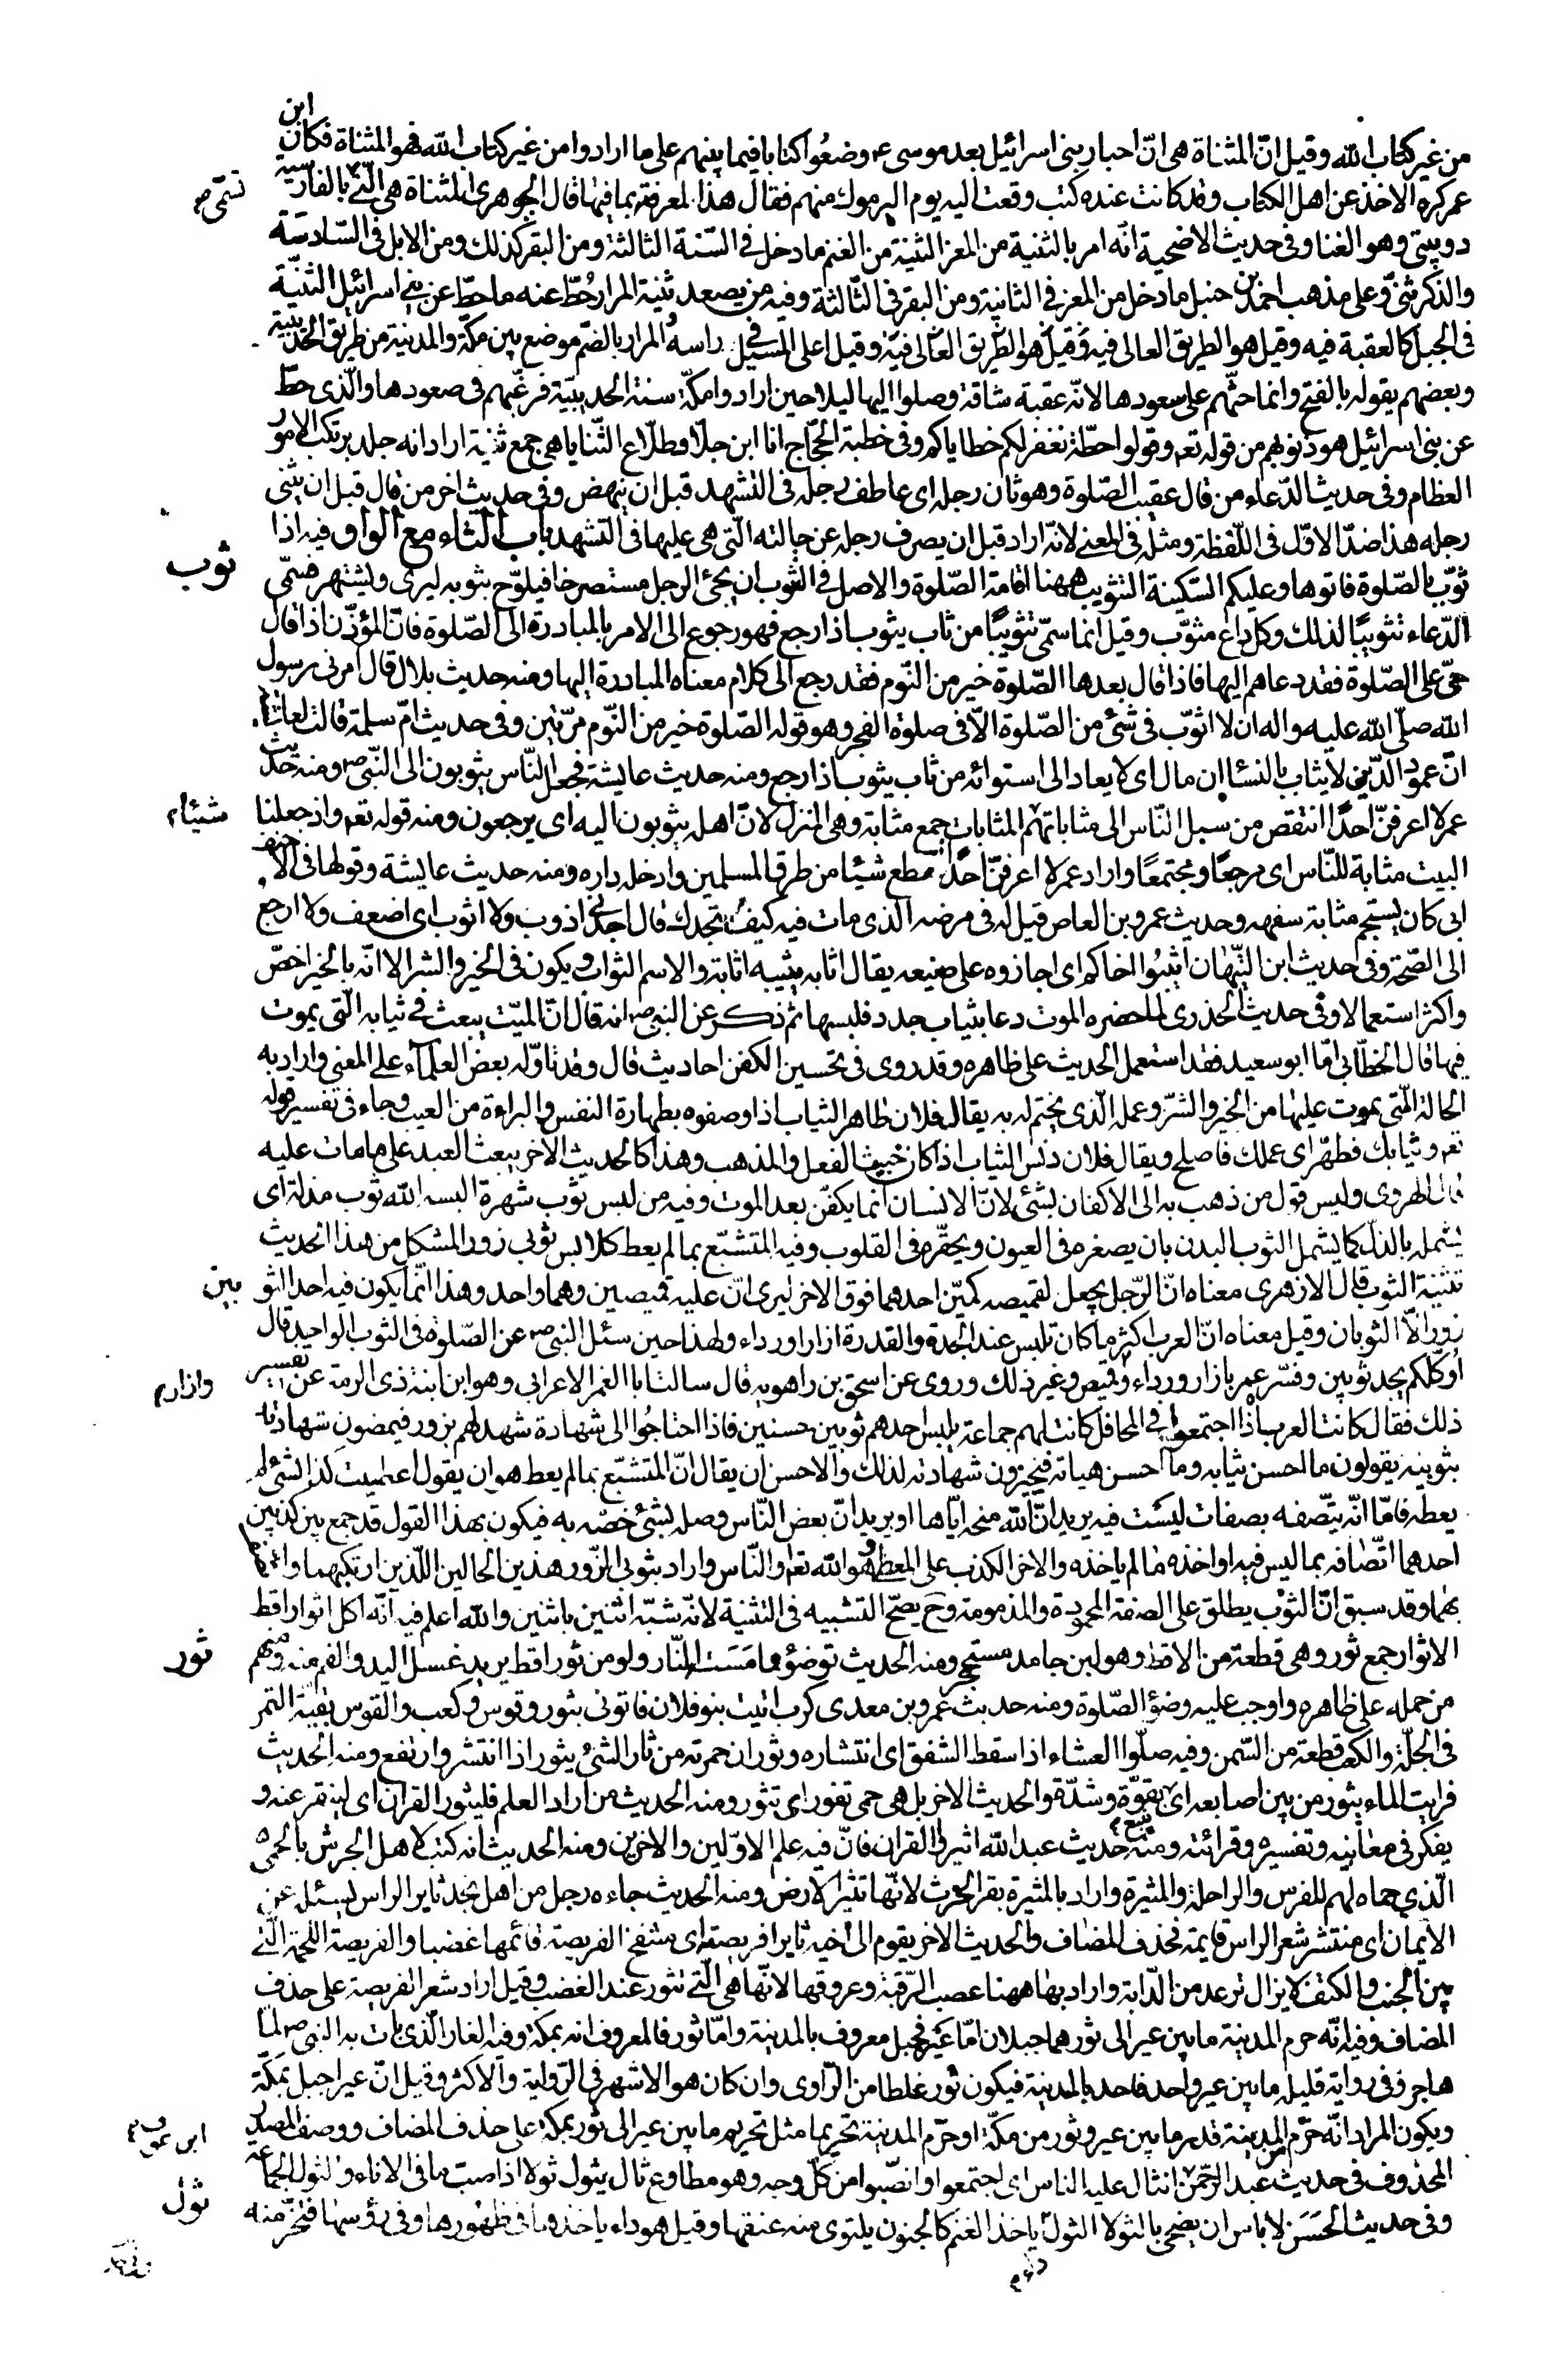 من غير كتاب الله وقيل انّ المثناة هى انّ احبار بنى اسرائيل بعد موسى ع وضعُوا كتابا فيما بينهم على ما ارادوا من غير كتاب الله فهو المثناة فكان ابن
عمر كره الاخذ عن اهل الكتاب وقد كانت عنده كتب وقعت اليه يوم اليرموك منهم فقال هذا لمعرفته بما فيها قال الجوهرى المثناة هى الّتى بالفارسية
تسمّى
دوبيتى وهو الغنا وفى حديث الاضحية انّه امر بالثنية من المعز الثنية من الغنم ما دخل فى السّنة الثالثة ومن البقر كذلك ومن الابل فى السّادسَة
والذكر ثنىّ وعلى مذهب احمد بن حنبل ما دخل من المعز فى الثانية ومن البقر فى الثّالثة وفيه من يصعد ثنية المرار حُطّ عنه ما حطّ عن بنى اسرائيل الثنيّة
فى الجبل كالعقبة فيه وقيل هو الطريق العالى فيه وقيل اعلى المسيل فى راسه والمرار بالضّم موضع بين مكّة والمدينة من طريق الحديبية
وبعضهم يقوله بالفتح وانما حثّهم على سعودها لانّه عقبة شاقة وصلوا اليها ليلا حين ارادوا مكّة سنة الحديبيّة فرغّبهم فى صعودها والّذى حطّ
عن بنى اسرائيل هو ذنوبهم من قوله تعم وقولوا حطّة نغفر لكم خطاياكم وفى خطبة الحجّاج انا ابن جلا وطلّاع الثّنايا هى جمع ثنيّة اراد انه جلد يرتكب الامور
العظام وفى حديث الدّعاء من قال عقيب الصّلوة وهو ثان رجله اى عاطف رجله فى التشهد قبل ان ينهض وفى حديث اخر من قال قبل ان يثنى
رجله هذا ضدّ الاوّل فى اللّفظة ومثله فى المعنى لانّه اراد قبل ان يصرف رجله عن حالته الّتى هى عليها فى التشهد باب الثاء مع الواو فيه اذا
ثوب
ثوّب بالصّلوة فاتوها وعليكم السّكينة التثويب ههنا اقامة الصّلوة والاصل فى التثوب ان يجئ الرجل مستصرخا فيلوّح بثوبه ليرى ويشتهر فسمّى
الدّعاء تثويبًا لذلك وكل داع مثوّب وقيل انما سمّى تثويبًا من ثاب يثوب اذا رجع فهو رجوع الى الامر بالمبادرة الى الصّلوة فانّ المؤذّن اذا قال
حىّ على الصّلوة فقد دعاهم اليها فاذا قال بعدها الصّلوة خير من النّوم فقد رجع الى كلام معناه المبادرة اليها ومنه حديث بلال قال امرنى رسول
الله صلّى الله عليه واله ان لا اثوّب فى شئ من الصّلوة الّا فى صلوة الفجر وهو قوله الصّلوة خير من النّوم مرّتين وفى حديث امّ سلمة قالت لعائشة
انّ عمود الدّين لا يثاب بالنساء ان مال اى لا يعاد الى استوائه من ثاب يثوب اذا رجع ومنه حديث عايشة فجعل النّاس يثوبون الى النّبىّ ص ومنه حديث
عمر لا اعرفنّ احدًا انتقص من سبل النّاس الى مثاباتهم المثابات جمع مثابة وهى المنزل لانّ اهله يثوبون اليه اى يرجعون ومنه قوله تعم واذ جعلنا
شيئا م
البيت مثابة للنّاس اى مرجعًا ومجتمعًا واراد عمر لا اعرفنّ احدًا قطع شيئا من طرق المسلمين وادخله داره ومنه حديث عايشة وقولها فى الاحنف
ابى كان يستجم مثابة سفهه وحديث عمرو بن العاص قيل له فى مرضه الذى مات فيه كيف تجدك قال اجدنى اذوب ولا اثوب اى اضعف ولا ارجع
الى الصّحة وفى حديث ابن التّيهان اثيبُوا اخاكم اى اجازوه على صنيعه يقال اثابه يثيبه اثابة والاسم الثواب ويكون فى الخير والشر الا انّه بالخير اخصّ
واكثر استعمالا وفى حديث الخدرى لما حضره الموت دعا بثياب جدد فلبسها ثم ذكر عن النبى ص انه قال انّ الميّت يبعث فى ثيابه الّتى يموت
فيها قال الخطّابى امّا ابو سعيد فقد استعمل الحديث على ظاهره وقد روى فى تحسين الكفن احاديث قال وقد تاوّله بعض العلماء على المعنى واراد به
الحالة الّتى يموت عليها من الخير والشرّ وعمله الّذى يختم له به يقال فلان طاهر الثياب اذا وصفوه بطهارة النفس والبراءة من العيب وجاء فى تفسير قوله
تعم وثيابك فطهّر اى عملك فاصلح ويقال فلان دنس الثياب اذا كان خبيث الفعل والمذهب وهذا كالحديث الاخر يبعث العبد على ما مات عليه
قال الهروى وليس قول من ذهب به الى الاكفان بشئ لانّ الانسان انما يكفّن بعد الموت وفيه من لبس ثوب شهرة البسه الله ثوب مذلة اى
يشمله بالذلّ كما يشمل الثوب البدن بان يصغره فى العيون ويحقّره فى القلوب وفيه المتشبّع بما لم يعط كلابس ثوبى زور المشكل من هذا الحديث
تثنية الثوب قال الازهرى معناه انّ الرّجل يجعل لقميصه كمّين احدهما فوق الاخر ليرى انّ عليه قميصين وهما واحد وهذا انّما يكون فيه احد الثو
بين
زورا لا الثوبان وقيل معناه انّ العرب اكثر ما كان تلبس عند الجدة والقدرة ازارا ورداء ولهذا حين سئل النبى ص عن الصّلوة فى الثوب الواحد قال
اوكلّكم يجد ثوبين وفسّر عمر بازار ورداء وقميص وغير ذلك وروى عن اسحق بن راهويه قال سالت ابا الغمر الاعرابى وهو ابن ابنة ذى الرمة عن تفسير
وازار م
ذلك فقال كانت العرب اذا اجتمعوا فى المحافل كانت لهم جماعة يلبس احدهم ثوبين حسنين فاذا احتاجُوا الى شهادة شهد لهم بزور فيمضون شهادته
بثوبيه يقولون ما احسن ثيابه وما احسن هياته فيجيزون شهادته لذلك والاحسن ان يقال انّ المتشبّع بما لم يعط هو ان يقول اعطيت كذا لشئ لم
يعطه فامّا انّه يتّصفه بصفات ليسَت فيه يريد انّ الله منحه ايّاها او يريد انّ بعض النّاس وصله بشئ خصّه به فيكون بهذا القول قد جمع بين كذبين
احدهما اتّصافه بما ليس فيه او اخذه ما لم ياخذه والاخر الكذب على المعطى وهو الله تعم او النّاس واراد بثوبى الزّور هذين الحالين اللّذين ارتكبهما
بهما وقد سبق انّ الثوب يطلق على الصفة المحمودة والمذمومة وح يصحّ التشبيه فى التثنية لانّه شبّه اثنين باثنين والله اعلم فيه انّه اكل اثوار اقط
الاثوار جمع ثور وهى قطعة من الاقط وهو لبن جامد مستحجر ومنه الحديث توضؤا مما مَسَت النّار ولو من ثور اقط يريد غسل اليد والفم منه ومنهم
ثور
من حمله على ظاهره واوجب عليه وضؤ الصّلوة ومنه حديث عمرو بن معدى كرب اتيت بنو فلان فاتونى بثور وقوس وكعب والقوس بقيّة التمر
فى الجلّة والكعب قطعة من السّمن وفيه صلّوا العشاء اذا سقط الشفق اى انتشاره وثوران حمرته من ثار الشئ يثور اذا انتشر وارتفع ومنه الحديث
فرايت الماء يثور من بين اصابعه اى بقوّة وشدّة والحديث الاخر بل هى حمى تفور اى تثور ومنه الحديث من اراد العلم فليثور القران اى لينقر عنه و
يفكر فى معانيه وتفسيره وقرائته ومنه حديث عبد الله اثيروا القران فانّ فيه علم الاوّلين والاخرين ومنه الحديث انه كتب لاهل الجرش بالحمى
الّذى حماه لهم للفرس والراحلة والمثيرة واراد بالمثيرة بقر الحرث لانّها تثير الارض ومنه الحديث جاءه رجل من اهل نجد ثاير الراس ليسئله عن
الايمان اى منتشر شعر الراس قايمه فحذف المضاف والحديث الاخر يقوم الى اخيه ثايرا فريصته اى منتفخ الفريصة قائمها غضبا والفريصة اللحمة الّتى
بين الجنب والكتف لا يزال ترعد من الدّابة واراد بها ههنا عصب الرّقبة وعروقها لانّها هى الّتى تثور عند الغضب وقيل اراد شعر الفريصة على حذف
المضاف وفيه انّه حرم المدينة ما بين عير الى ثور هما جبلان امّا عَير فجبل معروف بالمدينة وامّا ثور فالمعروف انه بمكة وفيه الغار الّذى بات به النبى ص لمّا
هاجر وفى رواية قليلة ما بين عير واحد فاحد بالمدينة فيكون ثور غلطا من الرّاوى وان كان هو الاشهر فى الرّواية والاكثر وقيل انّ عيرا جبل بمَكّة
ويكون المراد انّه حرّم المدينة قدر ما بين عير وثور من مكّة او حرّم المدينة تحريما مثل تحريم ما بين عير الى ثور بمكة على حذف المضاف ووصف المصدر
المحذوف فى حديث عبد الرّحمن انثال عليه الناس اى اجتمعوا وانصّبوا من كلّ وجه وهو مطاوع ثال يثول ثولا اذا صبّ ما فى الاناء والثول الجماعة
ثول
وفى حديث الحَسَن لا باس ان يضحى بالثولا الثول داء ياخذ الغنم كالجنون يلتوى منه عنقها وقيل هو داء ياخذها فى ظهُورها وفى رؤسها فتخرّ منه